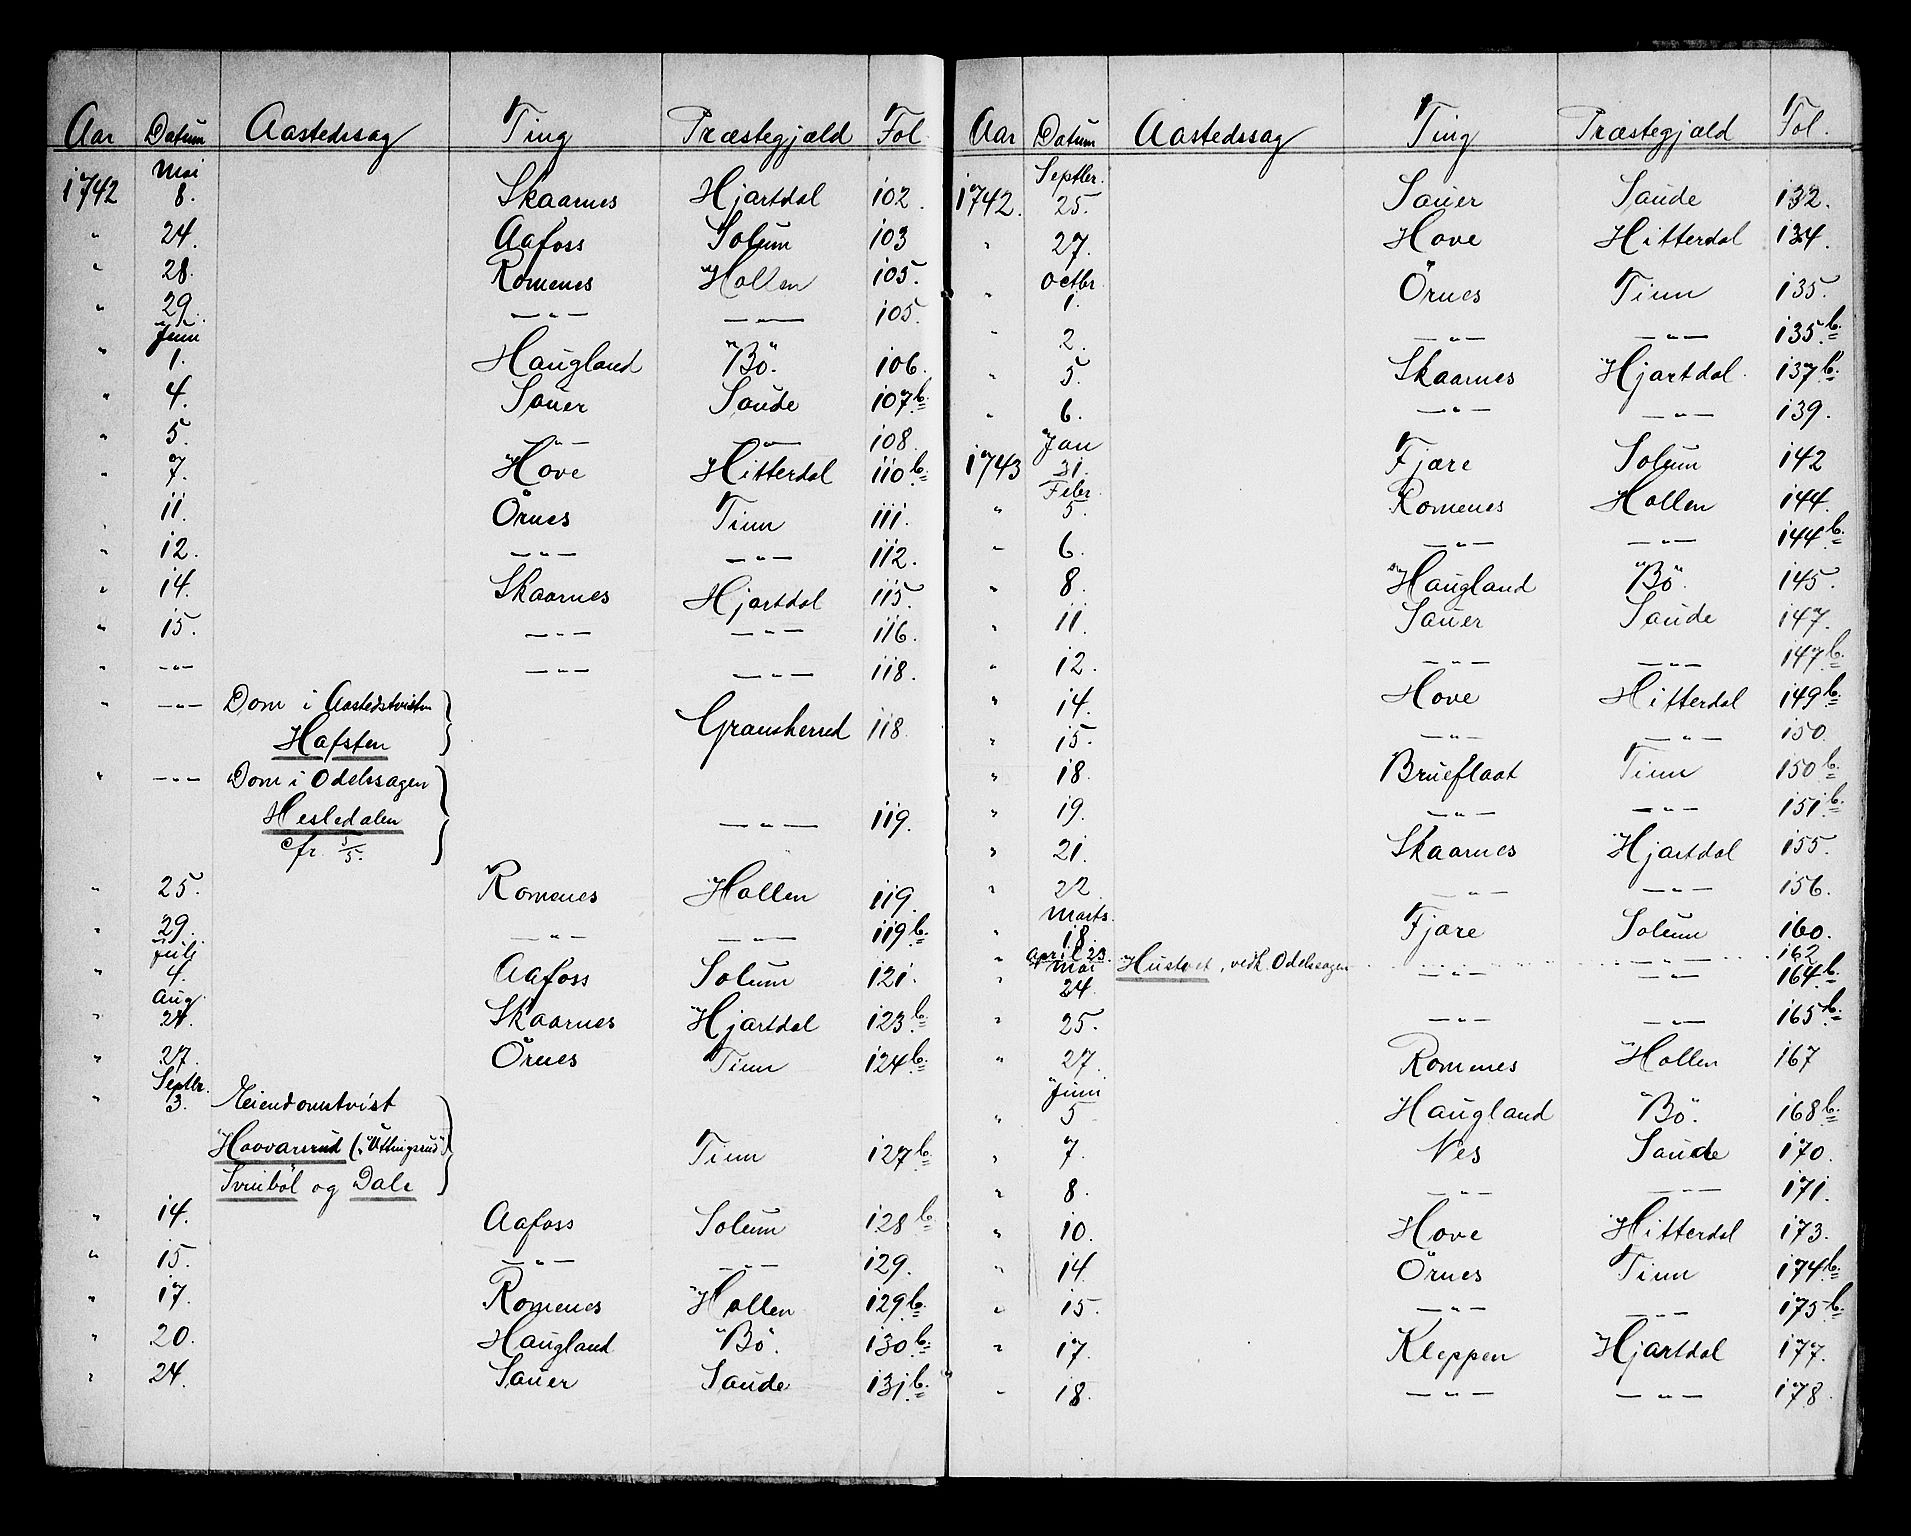 Aar Datum Aastedssag Ting Præstegjæld Fol
Mai
1742 8. Skaarnes Hjartdal 102.
" 24. Aafoss Solum 103
" 28. Romenes Hollen 105.
" 29. —"— —"— 105.
Juni
" 1. Haugland "Bö". 106.
" 4. Sauer Saude 107 b.
" 5. —"— —"— 108.
" 7. Hove Hitterdal 110 b.
" 11. Örnes Tinn 111.
" 12. —"— —"— 112.
" 14. Skaarnes Hjartdal 115.
" 15. —"— —"— 116.
" —"— —"— —"— 118.
" —"— Dom i Aastedstvisten
Hafsten Gransherred 118.
" —"— Dom i Odelssagen
Hesledalen —"— 119.
cfr. 5/5.
" 25. Romenes Hollen 119.
" 29. —"— —"— 119 b.
Juli
" 4. Aafoss Solum 121.
Aug.
" 24. Skaarnes Hjartdal 123 b.
" 27. Örnes Tinn 124 b.
Septbr.
" 3. Eiendomtvist
Hovvarerud ("Uttingsrud")
Tinn 127 b.
Svinböl og Dale
" 14. Aafoss Solum 128 b.
" 15. —"— —"— 129.
" 17. Romenes Hollen 129 b.
" 20. Haugland "Bö". 130 b.
" 24. Sauer Saude 131 b.
Aar Datum Aastedssag Ting Præstegjæld Fol.
Septbr.
1742. 25. Sauer Saude 132.
" 27. Hove Hitterdal 134.
Octbr
" 1. Örnes Tinn 135.
" 2. —"— —"— 135. b.
" 5. Skaarnes Hjartdal. 137 b.
" 6. —"— —"— 139.
Jan
1743 31. Fjære Solum 142
Febr.
" 5. Romenes Hollen 144.
" 6. —"— —"— 144 b.
" 8. Haugland "Bö". 145.
" 11. Sauer Saude 147.
" 12. —"— —"— 147 b.
" 14. Hove Hitterdal 149 b.
" 15. —"— —"— 150.
" 18. Brueflaat Tinn 150 b.
" 19. —"— —"— 151 b.
" 21. Skaarnes Hjartdal 155.
" 22. —"— —"— 156.
Marts.
" 18. Fjære Solum 160.
" April 23. Hustvet, vedk. Odelssagen 162
Mai
" 24. —"— —"— 164 b.
" 25. —"— —"— 165 b.
" 27. Romenes Hollen 167
Juni
" 5 Haugland "Bö". 168 b.
" 7. Nes Saude 170.
" 8. —"— —"— 171.
" 10. Hove Hitterdal 173.
" 14. Örnes Tinn 174 b.
" 15. —"— —"— 175 b.
" 17. Kleppen Hjartdal 177.
" 18. —"— —"— 178.